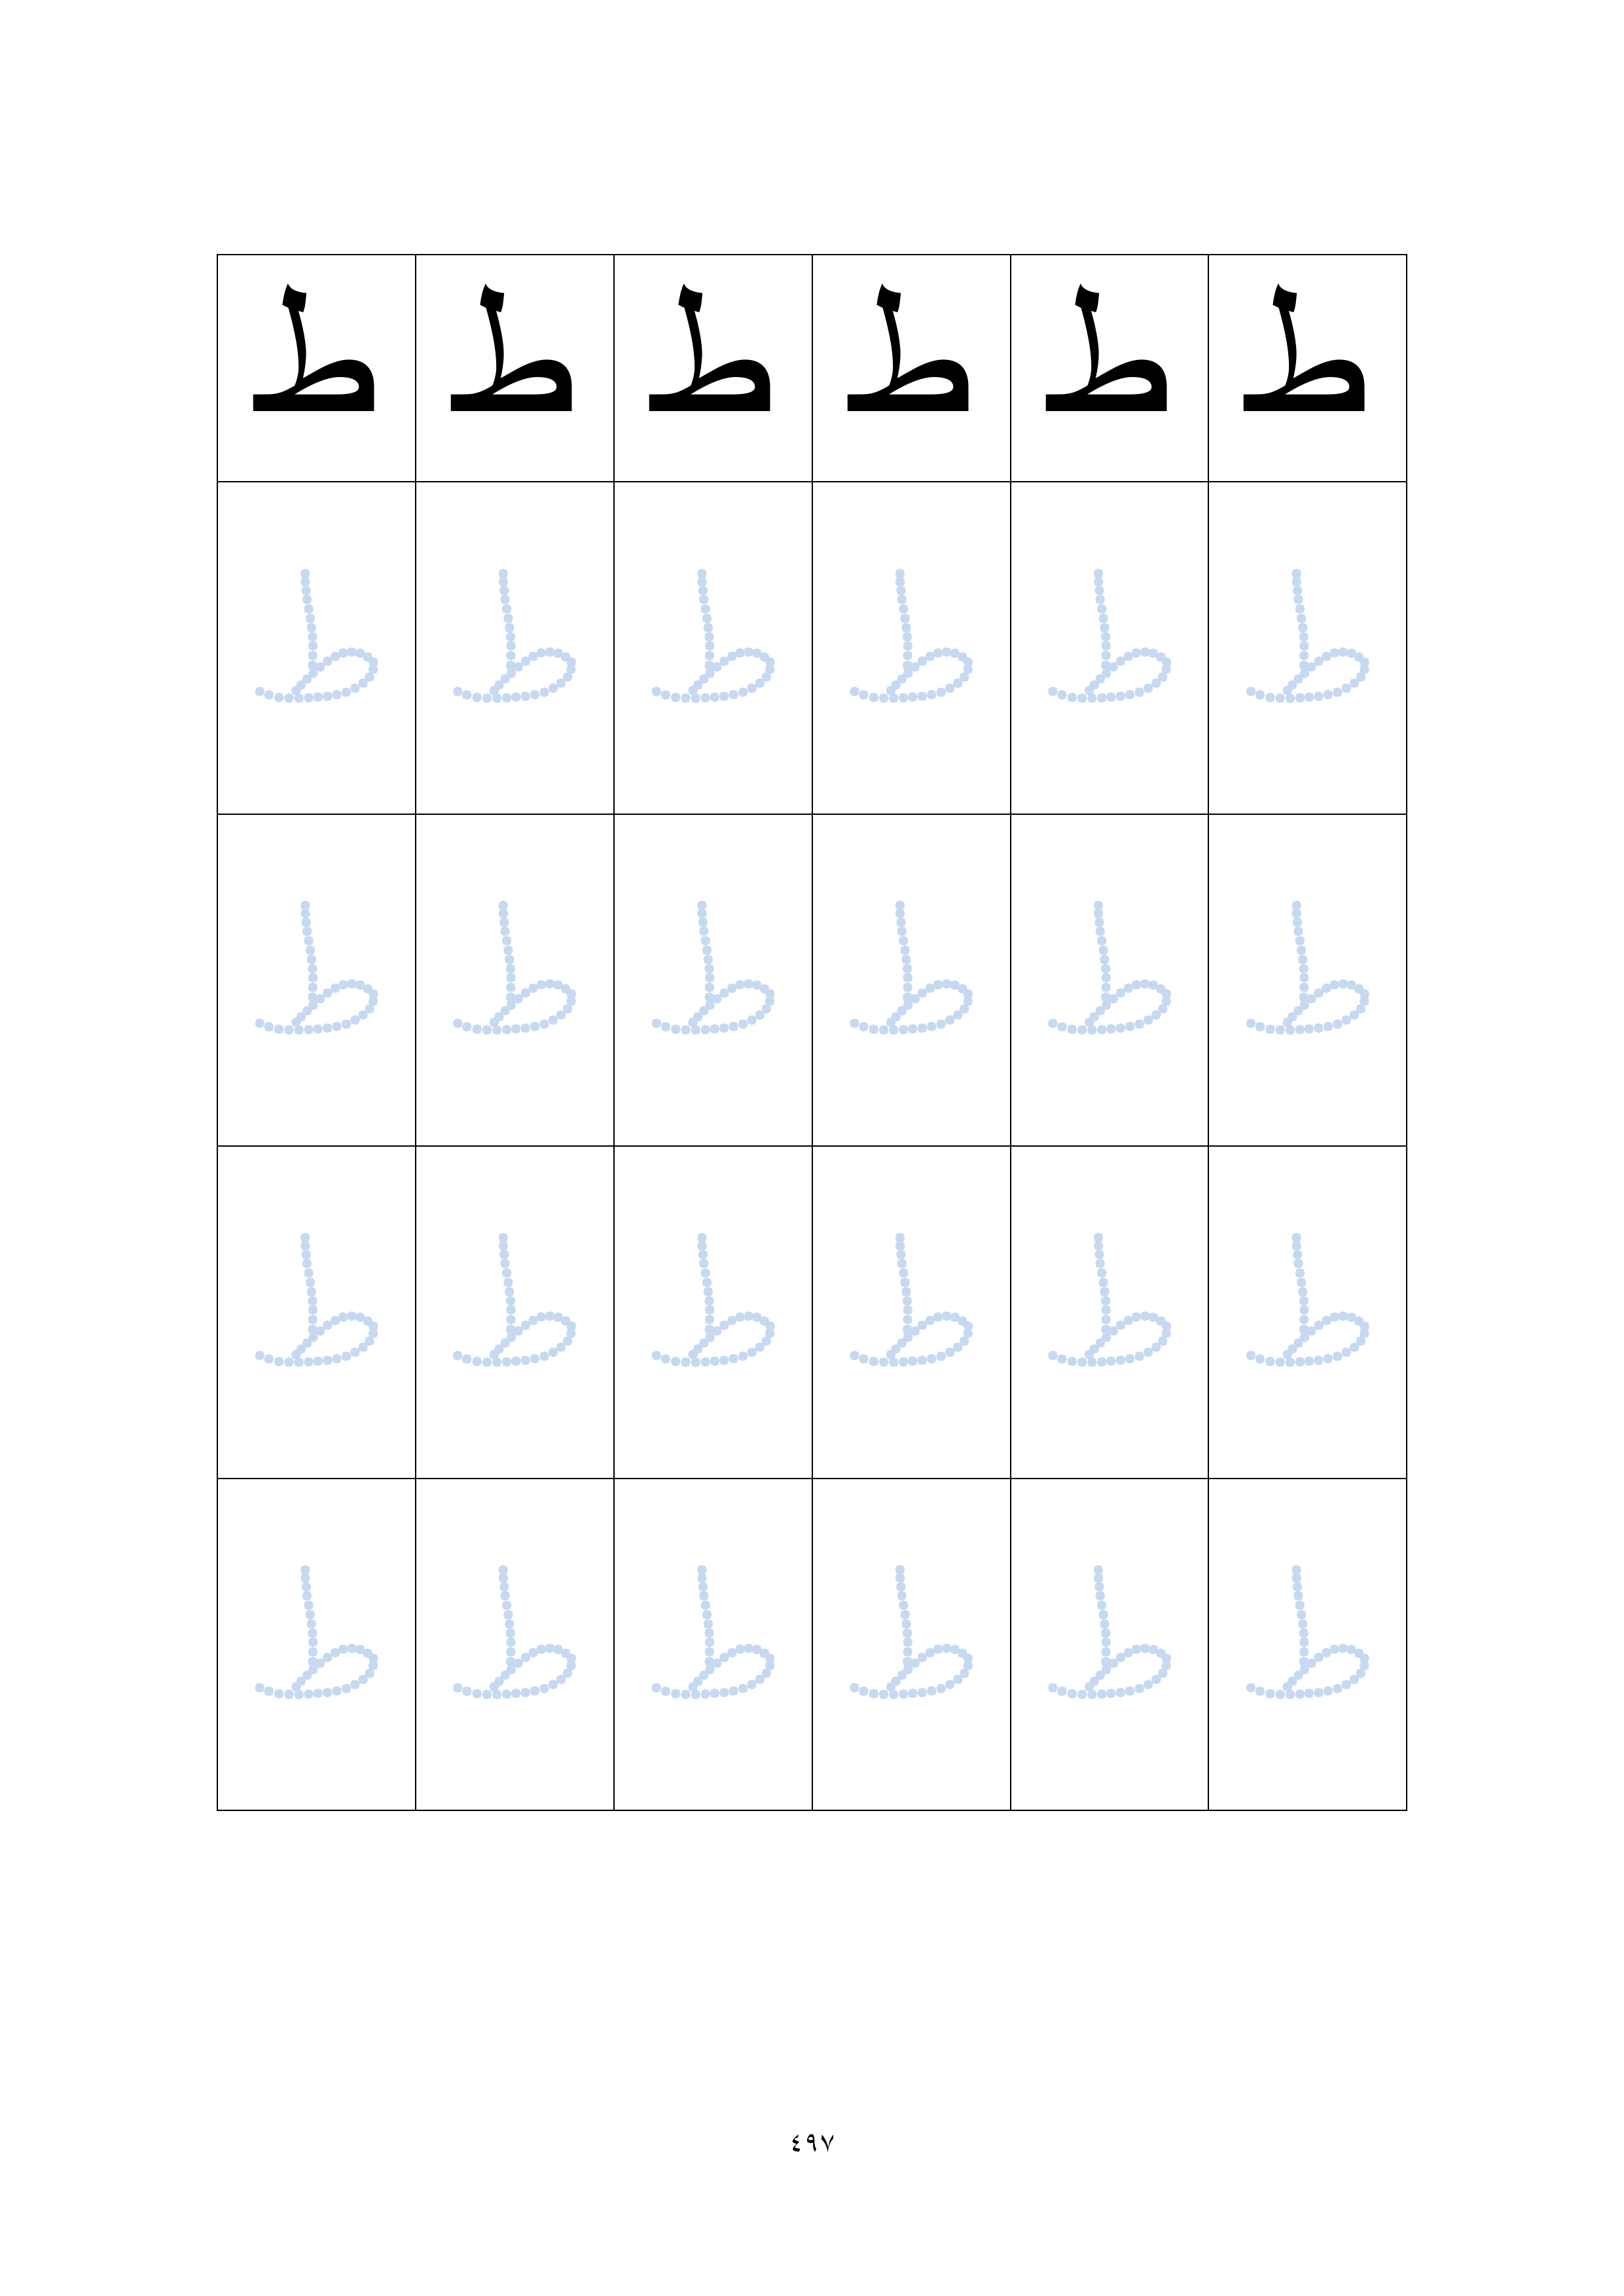 ط ط ط ط ط ط
ط ط ط ط ط ط
ط ط ط ط ط ط
ط ط ط ط ط ط
ط ط ط ط ط ط
٤٩٧